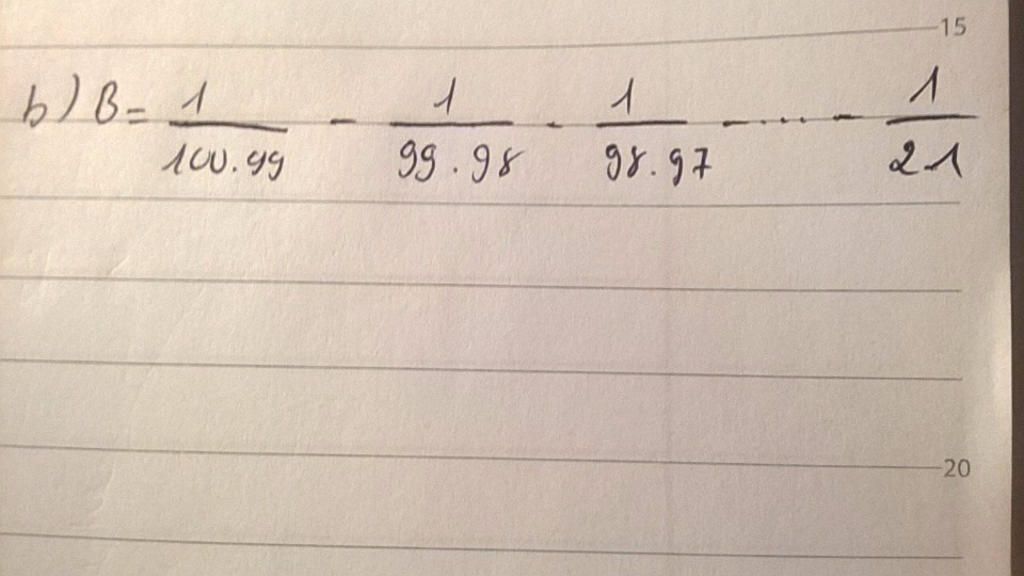 15
b) B = 1/100.99 - 1/99.98 - 1/98.97 - .... - 1/2 1
20